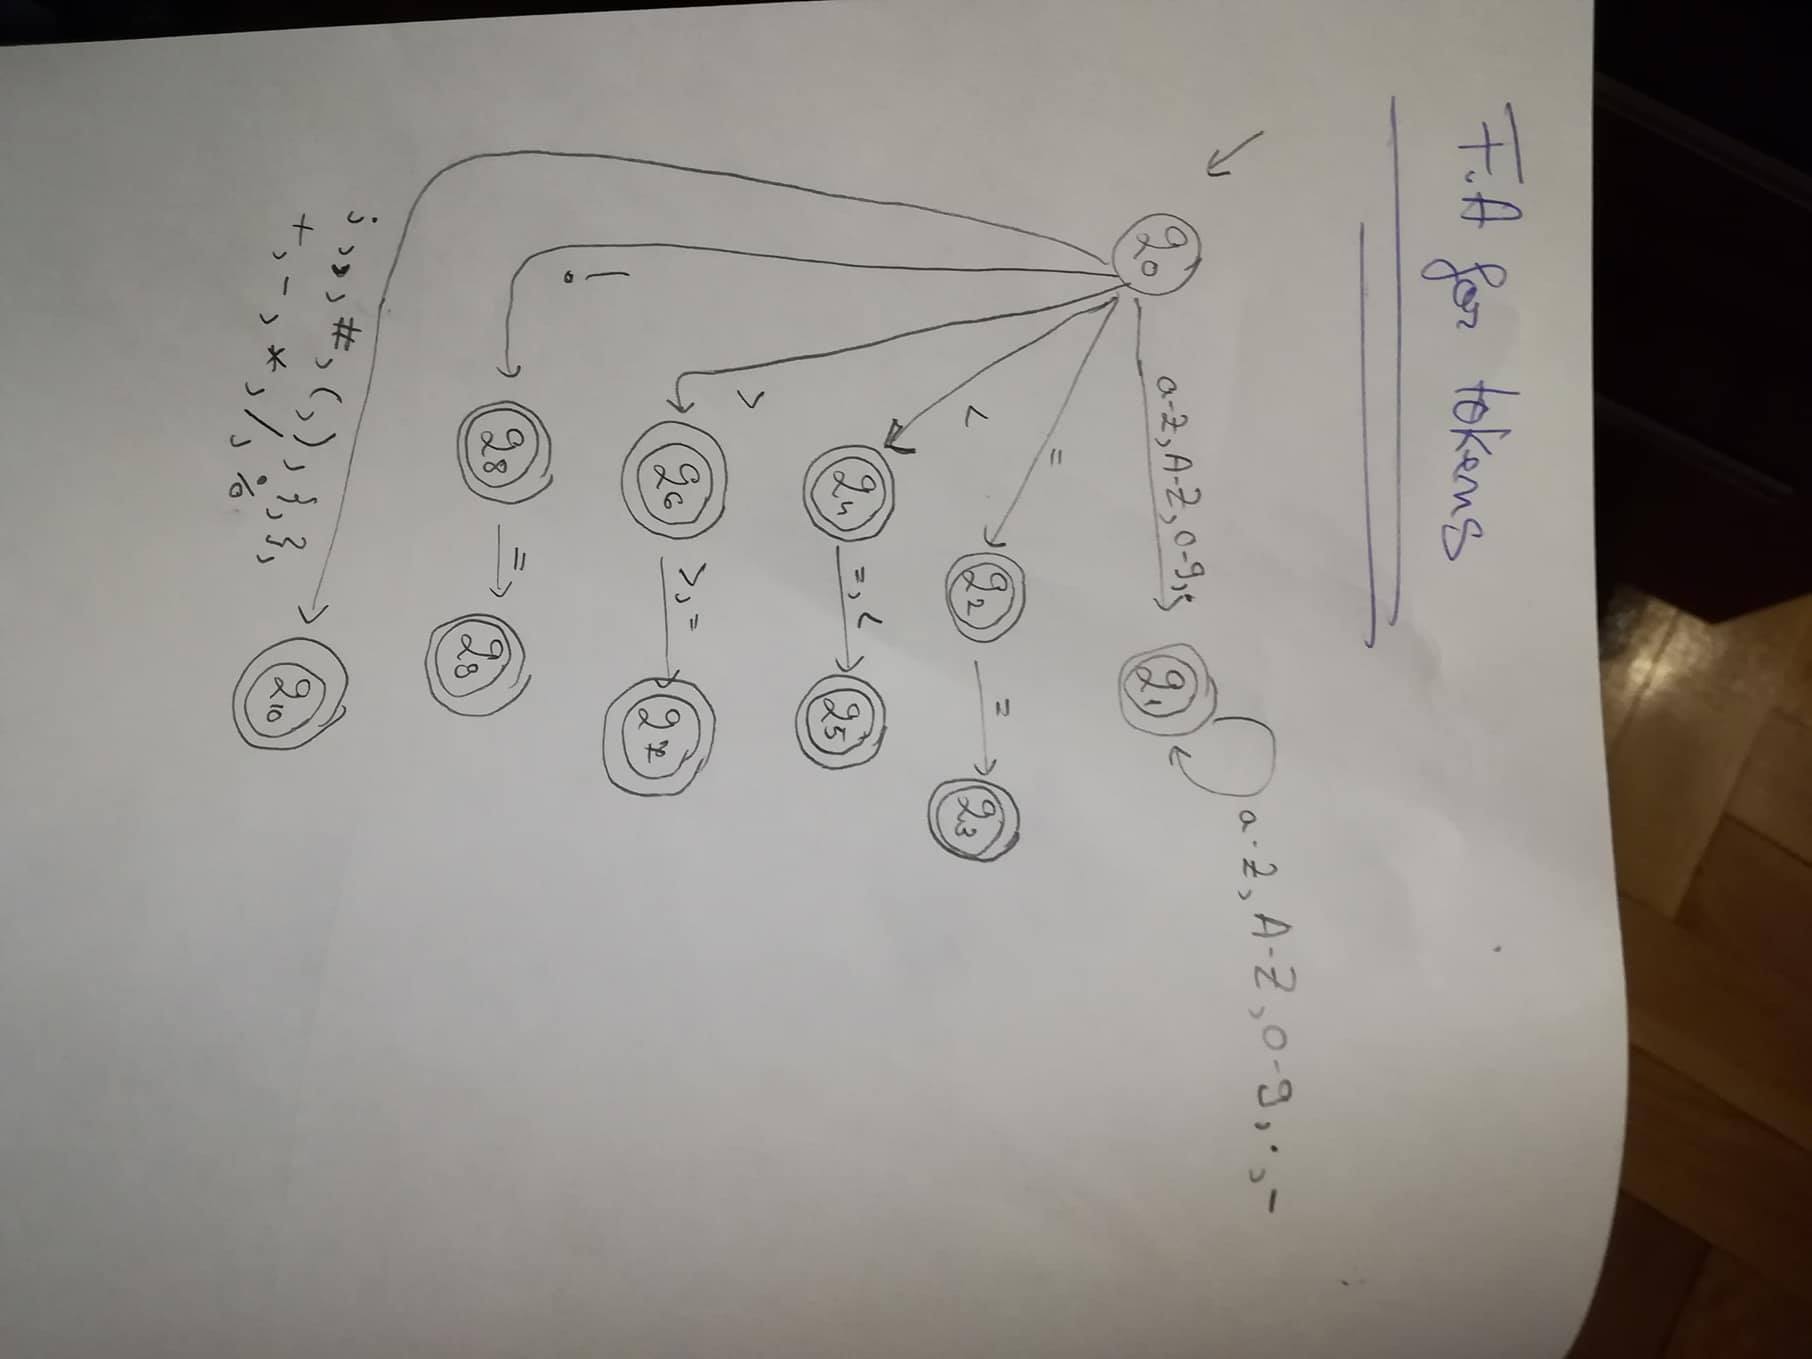 F.A for tokens
a-z, A-Z, 0-9, ., -
q0
a-z, A-Z, 0-9,
q1
=
q2
=
q3
<
q4
=, <
q5
>
q6
>, =
q7
!
q8
=
q9
; , , , #, (, ), }, },
+, -, *, /, %
q10